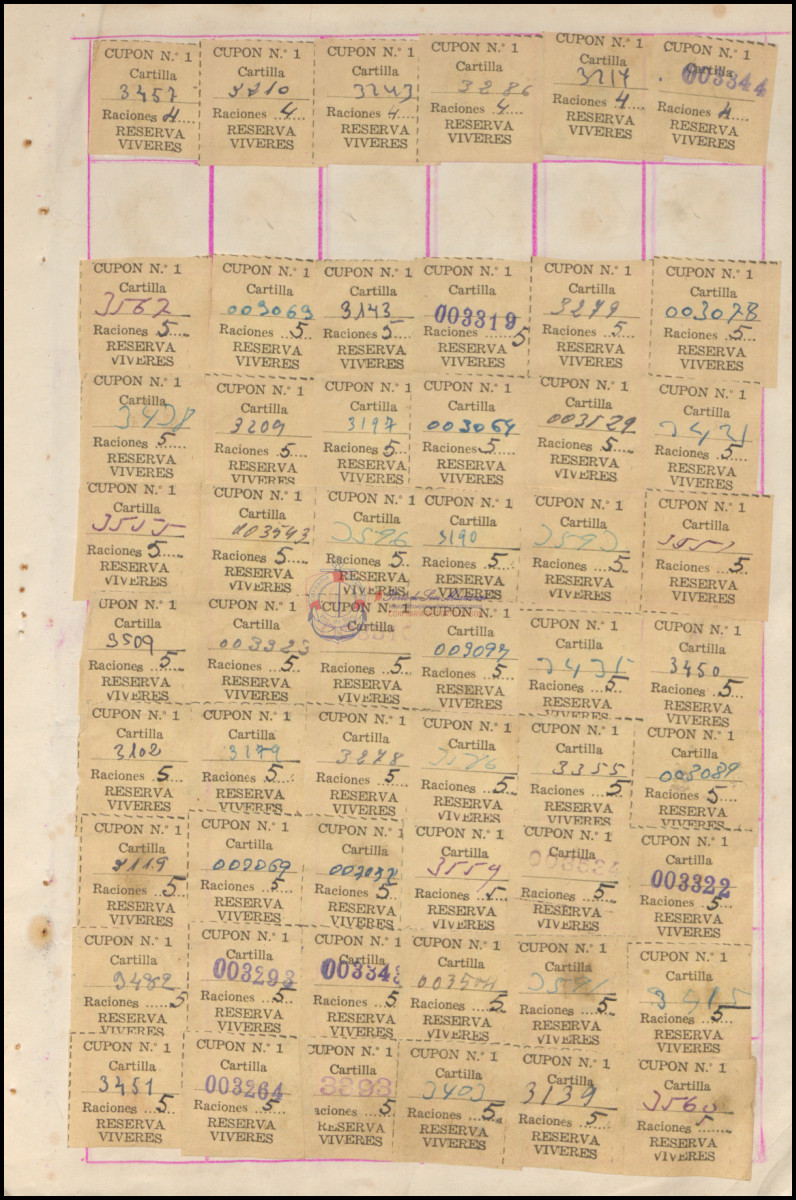 CUPON N.º 1
Cartilla
3457
Raciones 4....
RESERVA
VIVERES
CUPON N.º 1
Cartilla
3210
Raciones ..4...
RESERVA
VIVERES
CUPON N.º 1
Cartilla
3243
Raciones 4....
RESERVA
VIVERES
CUPON N.º 1
Cartilla
3286
Raciones ..4...
RESERVA
VIVERES
CUPON N.º 1
Cartilla
3214
Raciones 4....
RESERVA
VIVERES
CUPON N.º 1
Cartilla
003344
Raciones 4....
RESERVA
VIVERES
CUPON N.º 1
Cartilla
3562
Raciones 5....
RESERVA
VIVERES
CUPON N.º 1
Cartilla
003063
Raciones ..5...
RESERVA
VIVERES
CUPON N.º 1
Cartilla
3143
Raciones 5....
RESERVA
VIVERES
CUPON N.º 1
Cartilla
003319
Raciones ......5
RESERVA
VIVERES
CUPON N.º 1
Cartilla
3279
Raciones ..5...
RESERVA
VIVERES
CUPON N.º 1
Cartilla
003078
Raciones ..5...
RESERVA
VIVERES
CUPON N.º 1
Cartilla
3438
Raciones 5.....
RESERVA
VIVERES
CUPON N.º 1
Cartilla
3209
Raciones ..5...
RESERVA
VIVERES
CUPON N.º 1
Cartilla
3197
Raciones 5...
RESERVA
VIVERES
CUPON N.º 1
Cartilla
003064
Raciones 5.....
RESERVA
VIVERES
CUPON N.º 1
Cartilla
003529
Raciones ..5....
RESERVA
VIVERES
CUPON N.º 1
Cartilla
3431
Raciones ..5....
RESERVA
VIVERES
CUPON N.º 1
Cartilla
3555
Raciones 5.....
RESERVA
VIVERES
CUPON N.º 1
Cartilla
003543
Raciones ..5.....
RESERVA
VIVERES
CUPON N.º 1
Cartilla
3596
Raciones ...5..
RESERVA
VIVERES
CUPON N.º 1
Cartilla
3190
Raciones ...5..
RESERVA
VIVERES
CUPON N.º 1
Cartilla
Raciones ....5..
RESERVA
VIVERES
CUPON N.º 1
Cartilla
3551
Raciones ...5..
RESERVA
VIVERES
CUPON N.º 1
Cartilla
3509
Raciones ..5....
RESERVA
VIVERES
CUPON N.º 1
Cartilla
003323
Raciones ...5..
RESERVA
VIVERES
CUPON N.º 1
Cartilla
Raciones ...5..
RESERVA
VIVERES
CUPON N.º 1
Cartilla
003097
Raciones ..5....
RESERVA
VIVERES
CUPON N.º 1
Cartilla
3435
Raciones ...5..
RESERVA
VIVERES
CUPON N.º 1
Cartilla
3450
Raciones ..5....
RESERVA
VIVERES
CUPON N.º 1
Cartilla
3102
Raciones ..5...
RESERVA
VIVERES
CUPON N.º 1
Cartilla
3179
Raciones ..5...
RESERVA
VIVERES
CUPON N.º 1
Cartilla
3278
Raciones ...5..
RESERVA
VIVERES
CUPON N.º 1
Cartilla
Raciones ...5...
RESERVA
VIVERES
CUPON N.º 1
Cartilla
3355
Raciones ...5...
RESERVA
VIVERES
CUPON N.º 1
Cartilla
003089
Raciones ..5....
RESERVA
VIVERES
CUPON N.º 1
Cartilla
3119
Raciones ...5..
RESERVA
VIVERES
CUPON N.º 1
Cartilla
003069
Raciones ..5...
RESERVA
VIVERES
CUPON N.º
Cartilla
Raciones ..5...
RESERVA
VIVERES
CUPON N.º 1
Cartilla
3554
Raciones ...5..
RESERVA
VIVERES
CUPON N.º 1
Cartilla
Raciones ...5..
RESERVA
VIVERES
CUPON N.º 1
Cartilla
003322
Raciones ..5....
RESERVA
VIVERES
CUPON N.º 1
Cartilla
3482
Raciones ......5
RESERVA
VIVERES
CUPON N.º 1
Cartilla
003293
Raciones ..5...
RESERVA
VIVERES
CUPON N.º 1
Cartilla
Raciones ..5...
RESERVA
VIVERES
CUPON N.º 1
Cartilla
Raciones ...5..
RESERVA
VIVERES
CUPON N.º 1
Cartilla
3591
Raciones ..5....
RESERVA
VIVERES
CUPON N.º 1
Cartilla
3415
Raciones ..5....
RESERVA
VIVERES
CUPON N.º 1
Cartilla
3451
Raciones ...5...
RESERVA
VIVERES
CUPON N.º 1
Cartilla
003264
Raciones ...5..
RESERVA
VIVERES
CUPON N.º 1
Cartilla
3393
aciones ...5..
RESERVA
VIVERES
CUPON N.º 1
Cartilla
3403
Raciones .....5.
RESERVA
VIVERES
CUPON N.º 1
Cartilla
3139
Raciones ..5....
RESERVA
VIVERES
CUPON N.º 1
Cartilla
3560
Raciones 5......
RESERVA
VIVERES